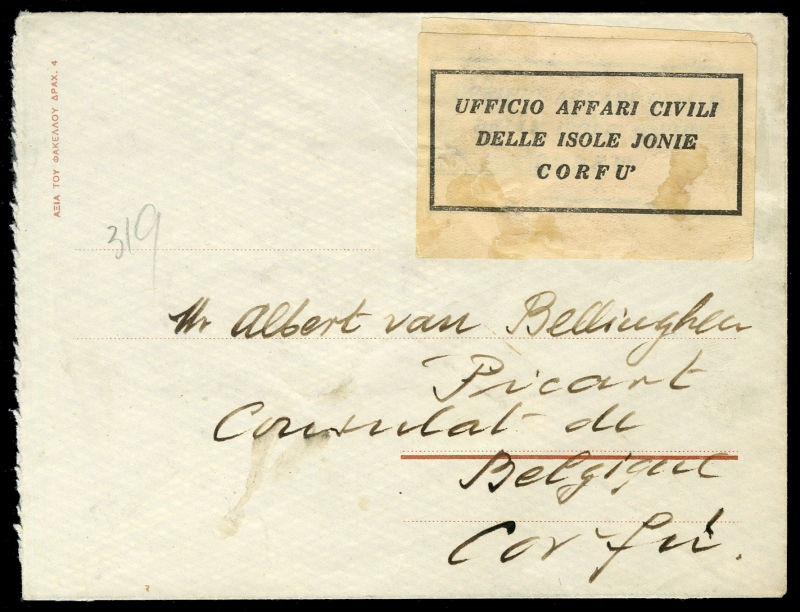 ΑΞΙΑ ΤΟΥ ΦΑΚΕΛΛΟΥ ΔΡΑΧ. 4
UFFICIO AFFARI CIVILI
DELLE ISOLE JONIE
CORFU'
319
Mr Albert van Bellinghen
Picart
Consulat de
Belgique
Corfú.